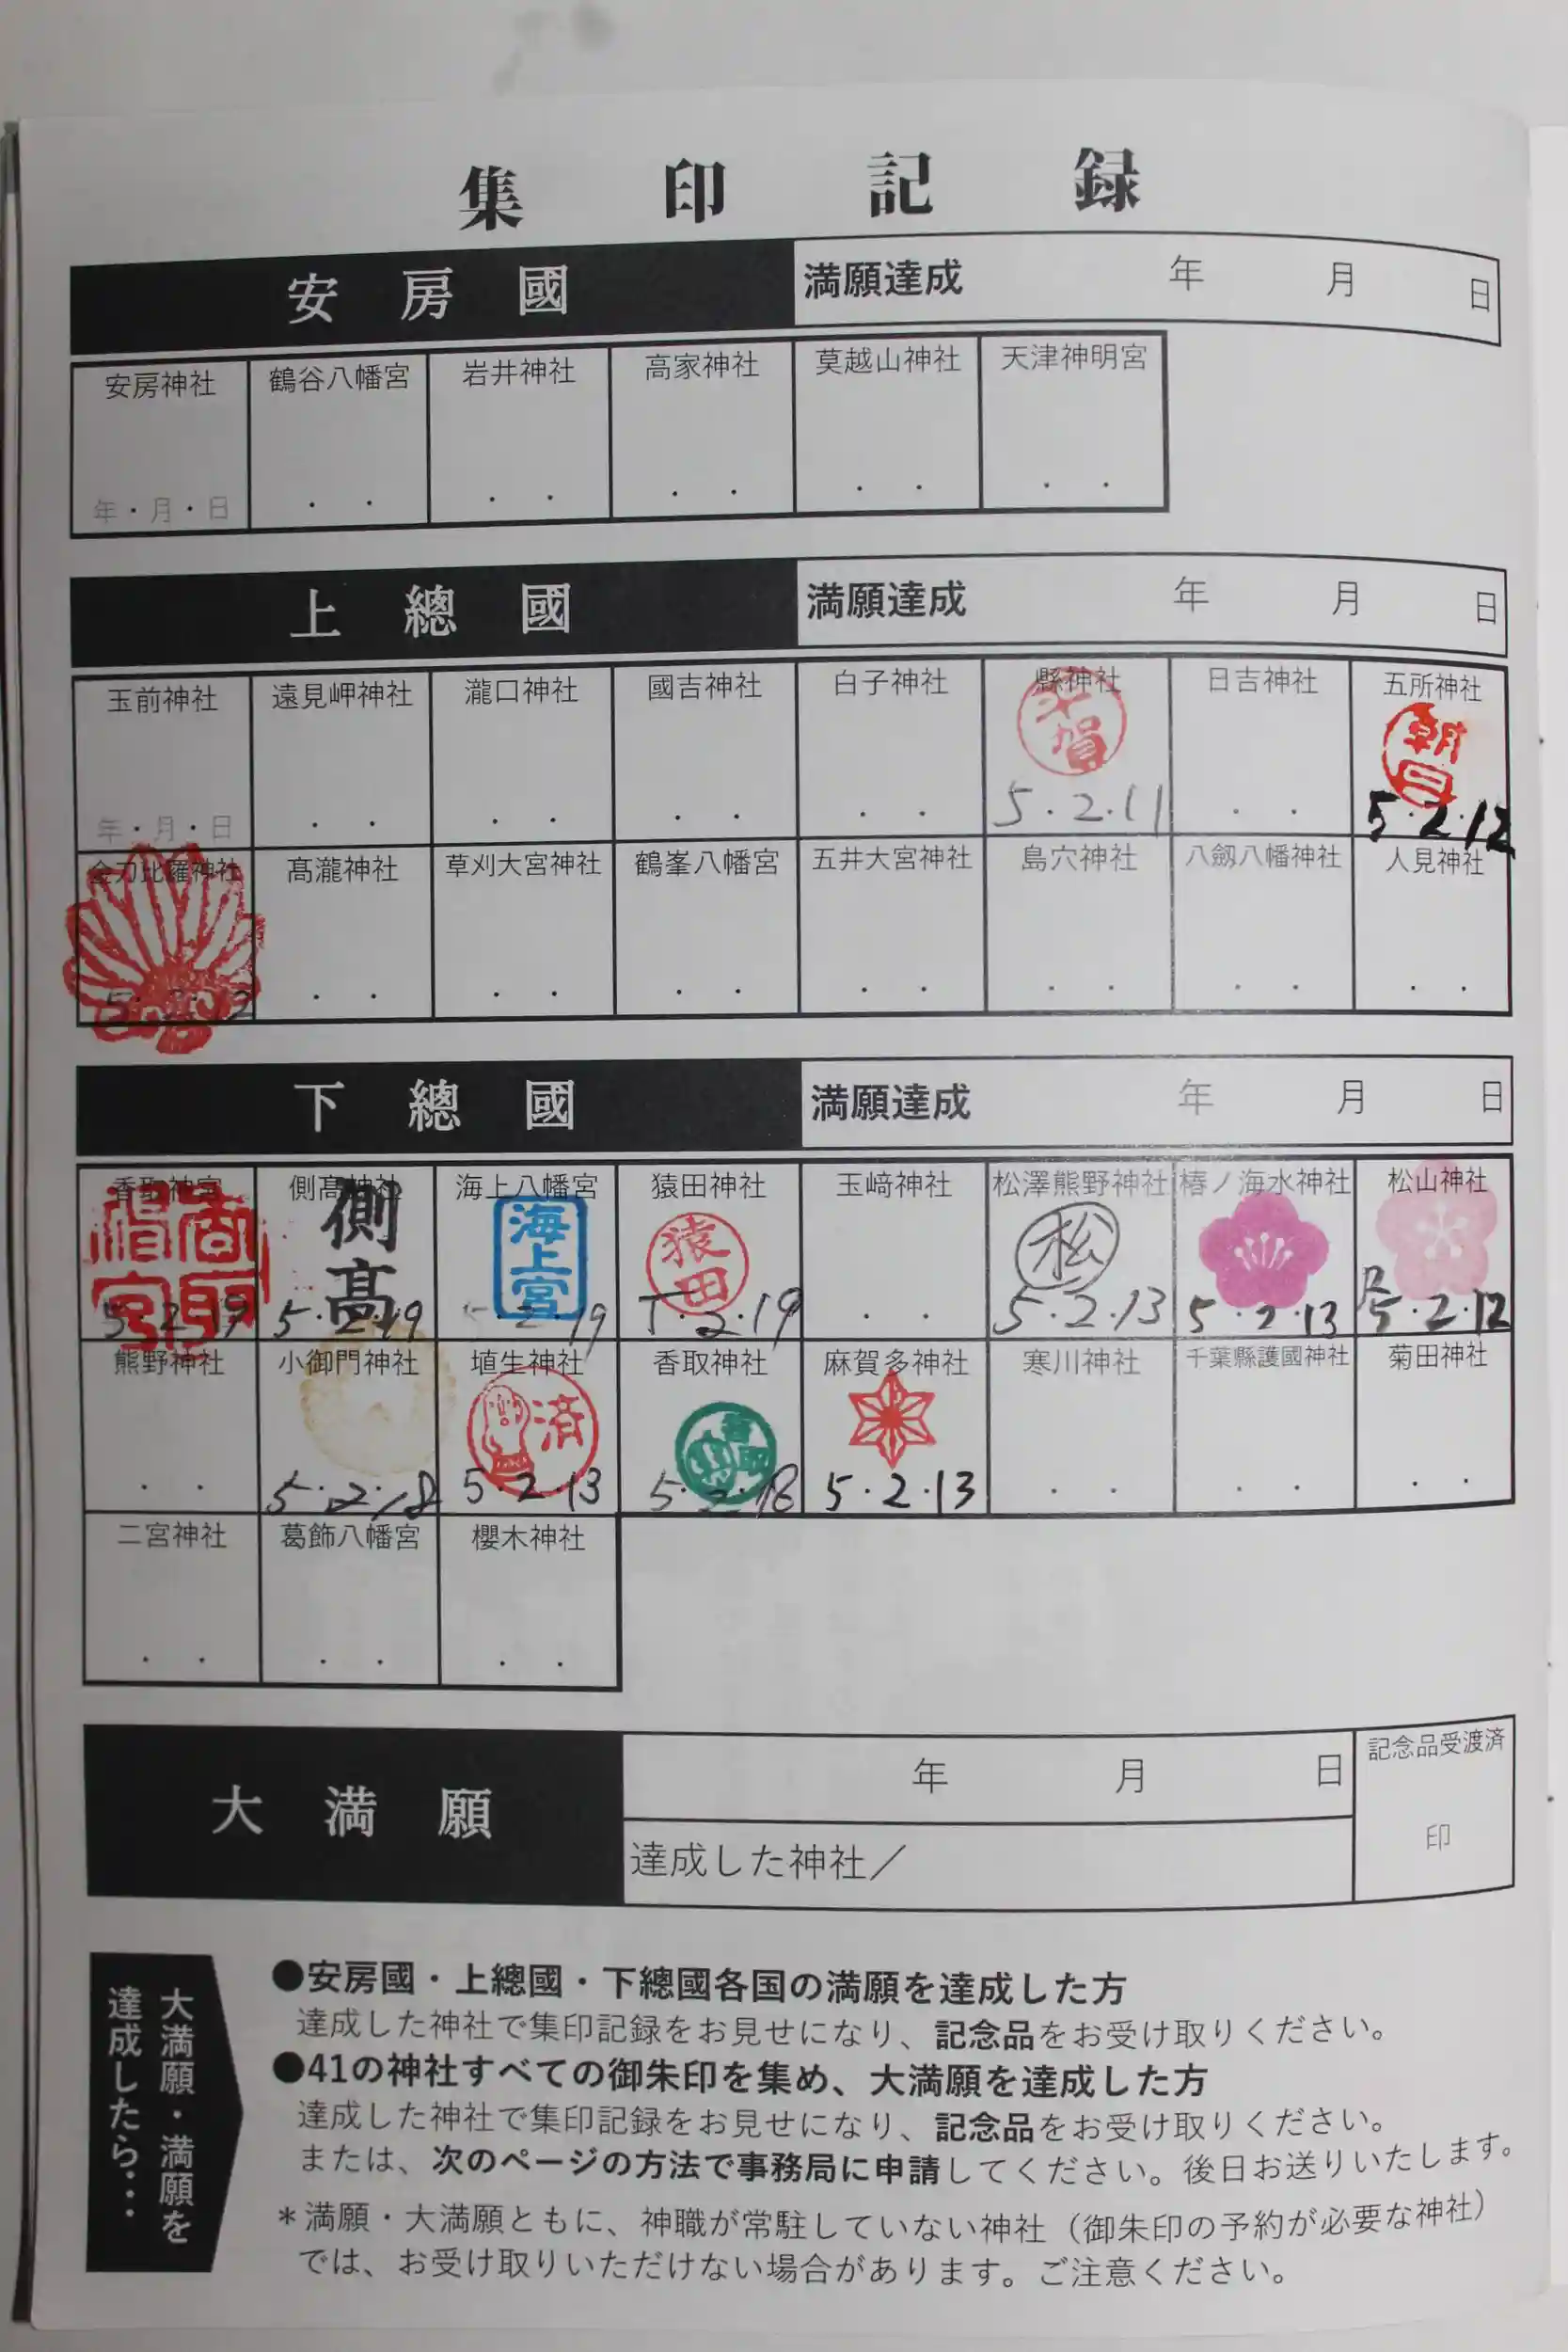 集印記録
安房國 満願達成 年 月 日
安房神社 鶴谷八幡宮 岩井神社 高家神社 莫越山神社 天津神明宮
年・月・日 ・ ・ ・ ・ ・ ・ ・ ・ ・ ・
上總國 満願達成 年 月 日
玉前神社 遠見岬神社 瀧口神社 國吉神社 白子神社 縣神社 日吉神社 五所神社
賀 朝日
年・月・日 ・ ・ ・ ・ ・ ・ ・ ・ 5・2・11 ・ ・ 5・2・12
金刀比羅神社 髙瀧神社 草刈大宮神社 鶴峯八幡宮 五井大宮神社 島穴神社 八劔八幡神社 人見神社
・ ・ ・ ・ ・ ・ ・ ・ ・ ・ ・ ・ ・ ・
下總國 満願達成 年 月 日
香取神宮 側髙神社 海上八幡宮 猿田神社 玉﨑神社 松澤熊野神社 椿ノ海水神社 松山神社
香取 側髙 海上宮 猿田 松
5・2・19 5・2・19 5・2・19 5・2・19 ・ ・ 5・2・13 5・2・13 5・2・12
熊野神社 小御門神社 埴生神社 香取神社 麻賀多神社 寒川神社 千葉縣護國神社 菊田神社
済
・ ・ 5・2・18 5・2・13 5・2・18 5・2・13 ・ ・ ・ ・ ・ ・
二宮神社 葛飾八幡宮 櫻木神社
・ ・ ・ ・ ・ ・
大満願 年 月 日 記念品受渡済
達成した神社／ 印
大満願・満願を
達成したら…
●安房國・上總國・下總國各国の満願を達成した方
達成した神社で集印記録をお見せになり、記念品をお受け取りください。
●41の神社すべての御朱印を集め、大満願を達成した方
達成した神社で集印記録をお見せになり、記念品をお受け取りください。
または、次のページの方法で事務局に申請してください。後日お送りいたします。
＊満願・大満願ともに、神職が常駐していない神社（御朱印の予約が必要な神社）
では、お受け取りいただけない場合があります。ご注意ください。